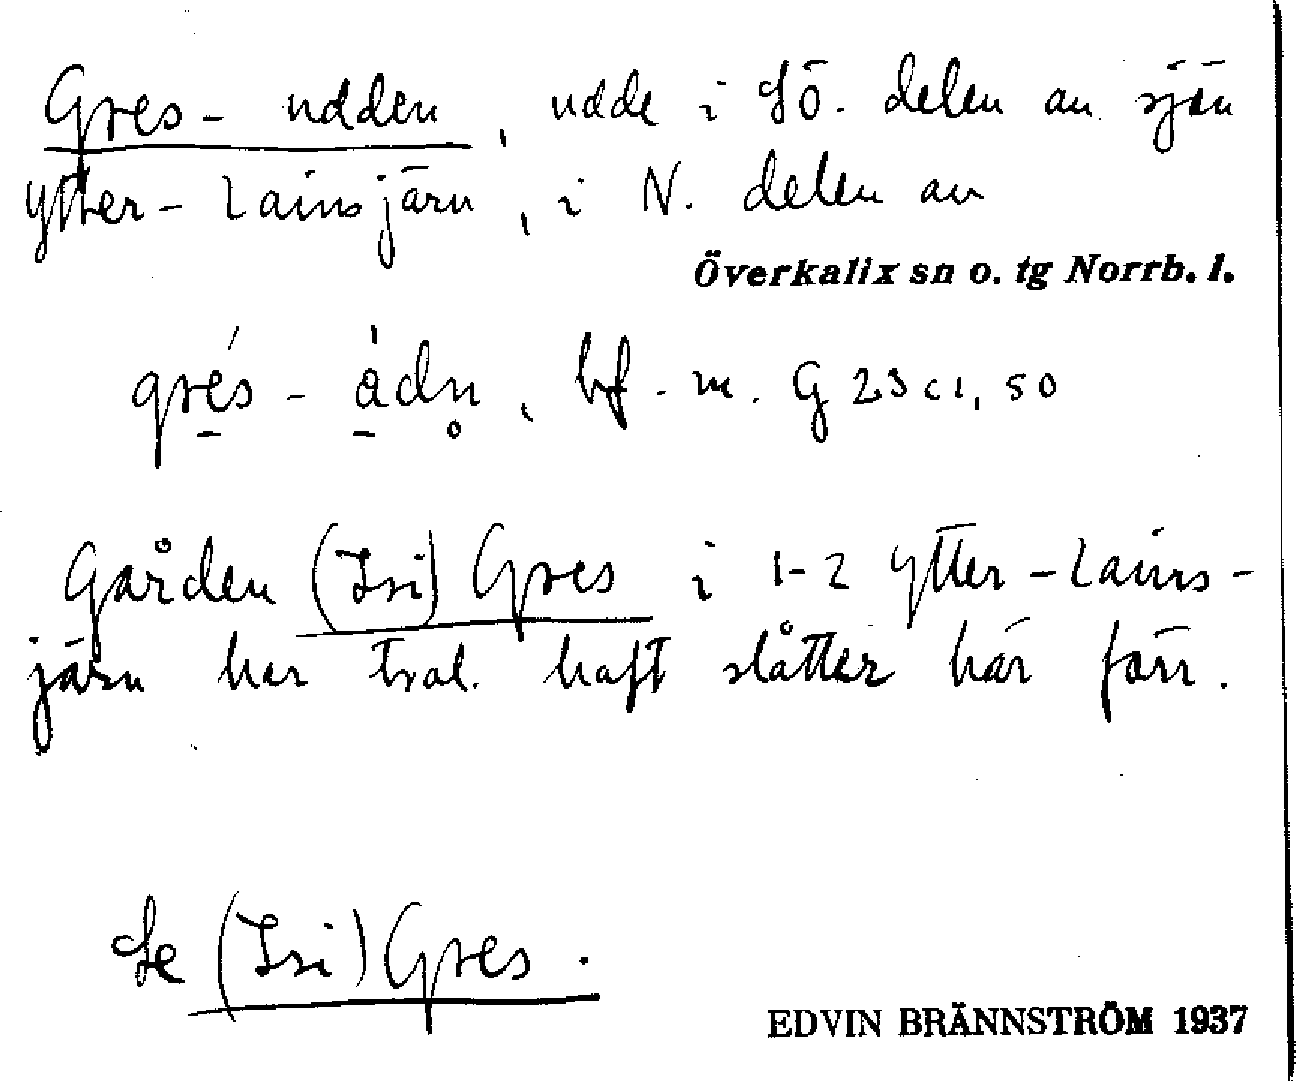 Gres-udden, udde i SÖ. delen av sjön
Ytter-Lainsjärn, i N. delen av
Överkalix sn o. tg Norrb. l.
grés-ádn, bf. m. G 23 c1, 50
Gården (Isi) Gres i 1-2 Ytter-Lains-
järn har trol. haft slåtter här förr.
Se (Isi) Gres.
EDVIN BRÄNNSTRÖM 1937